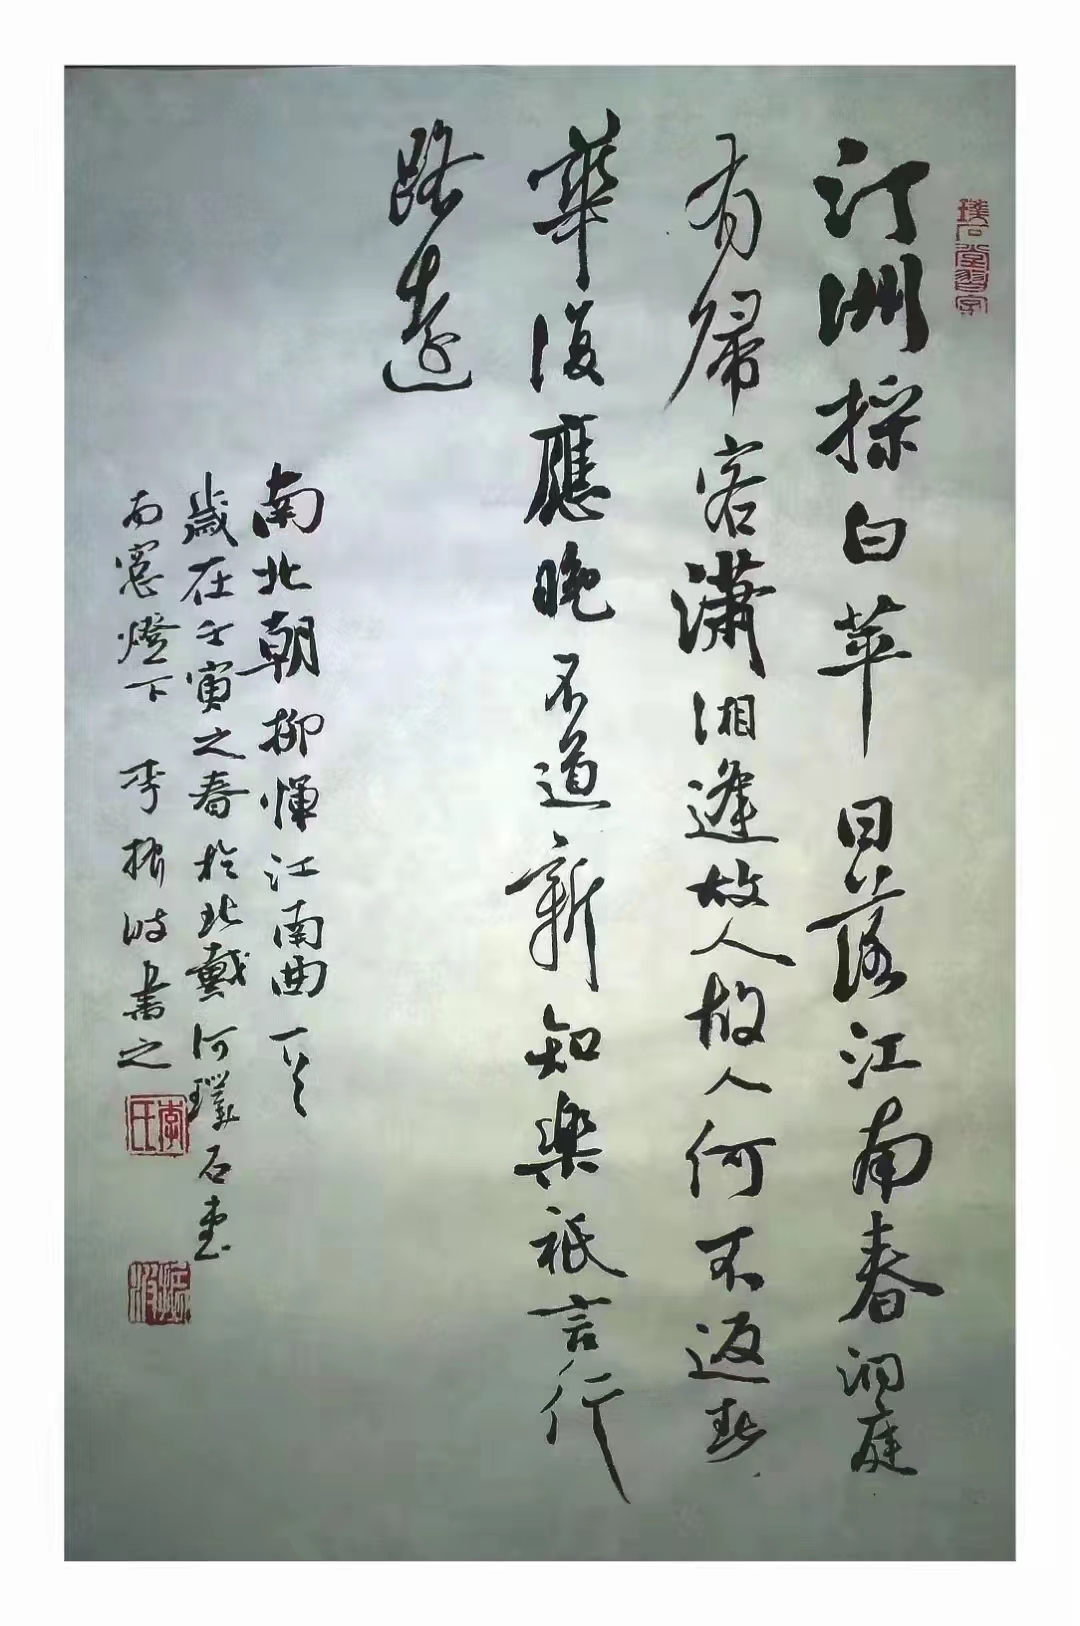 璞石堂習字
汀洲採白苹日落江南春洞庭
有歸客瀟湘逢故人故人何不返春
華復應晚不道新知樂祇言行
路遠
南北朝柳惲江南曲一首
歲在壬寅之春於北戴河璞石堂
南窻燈下 李振波書之
李氏
振波